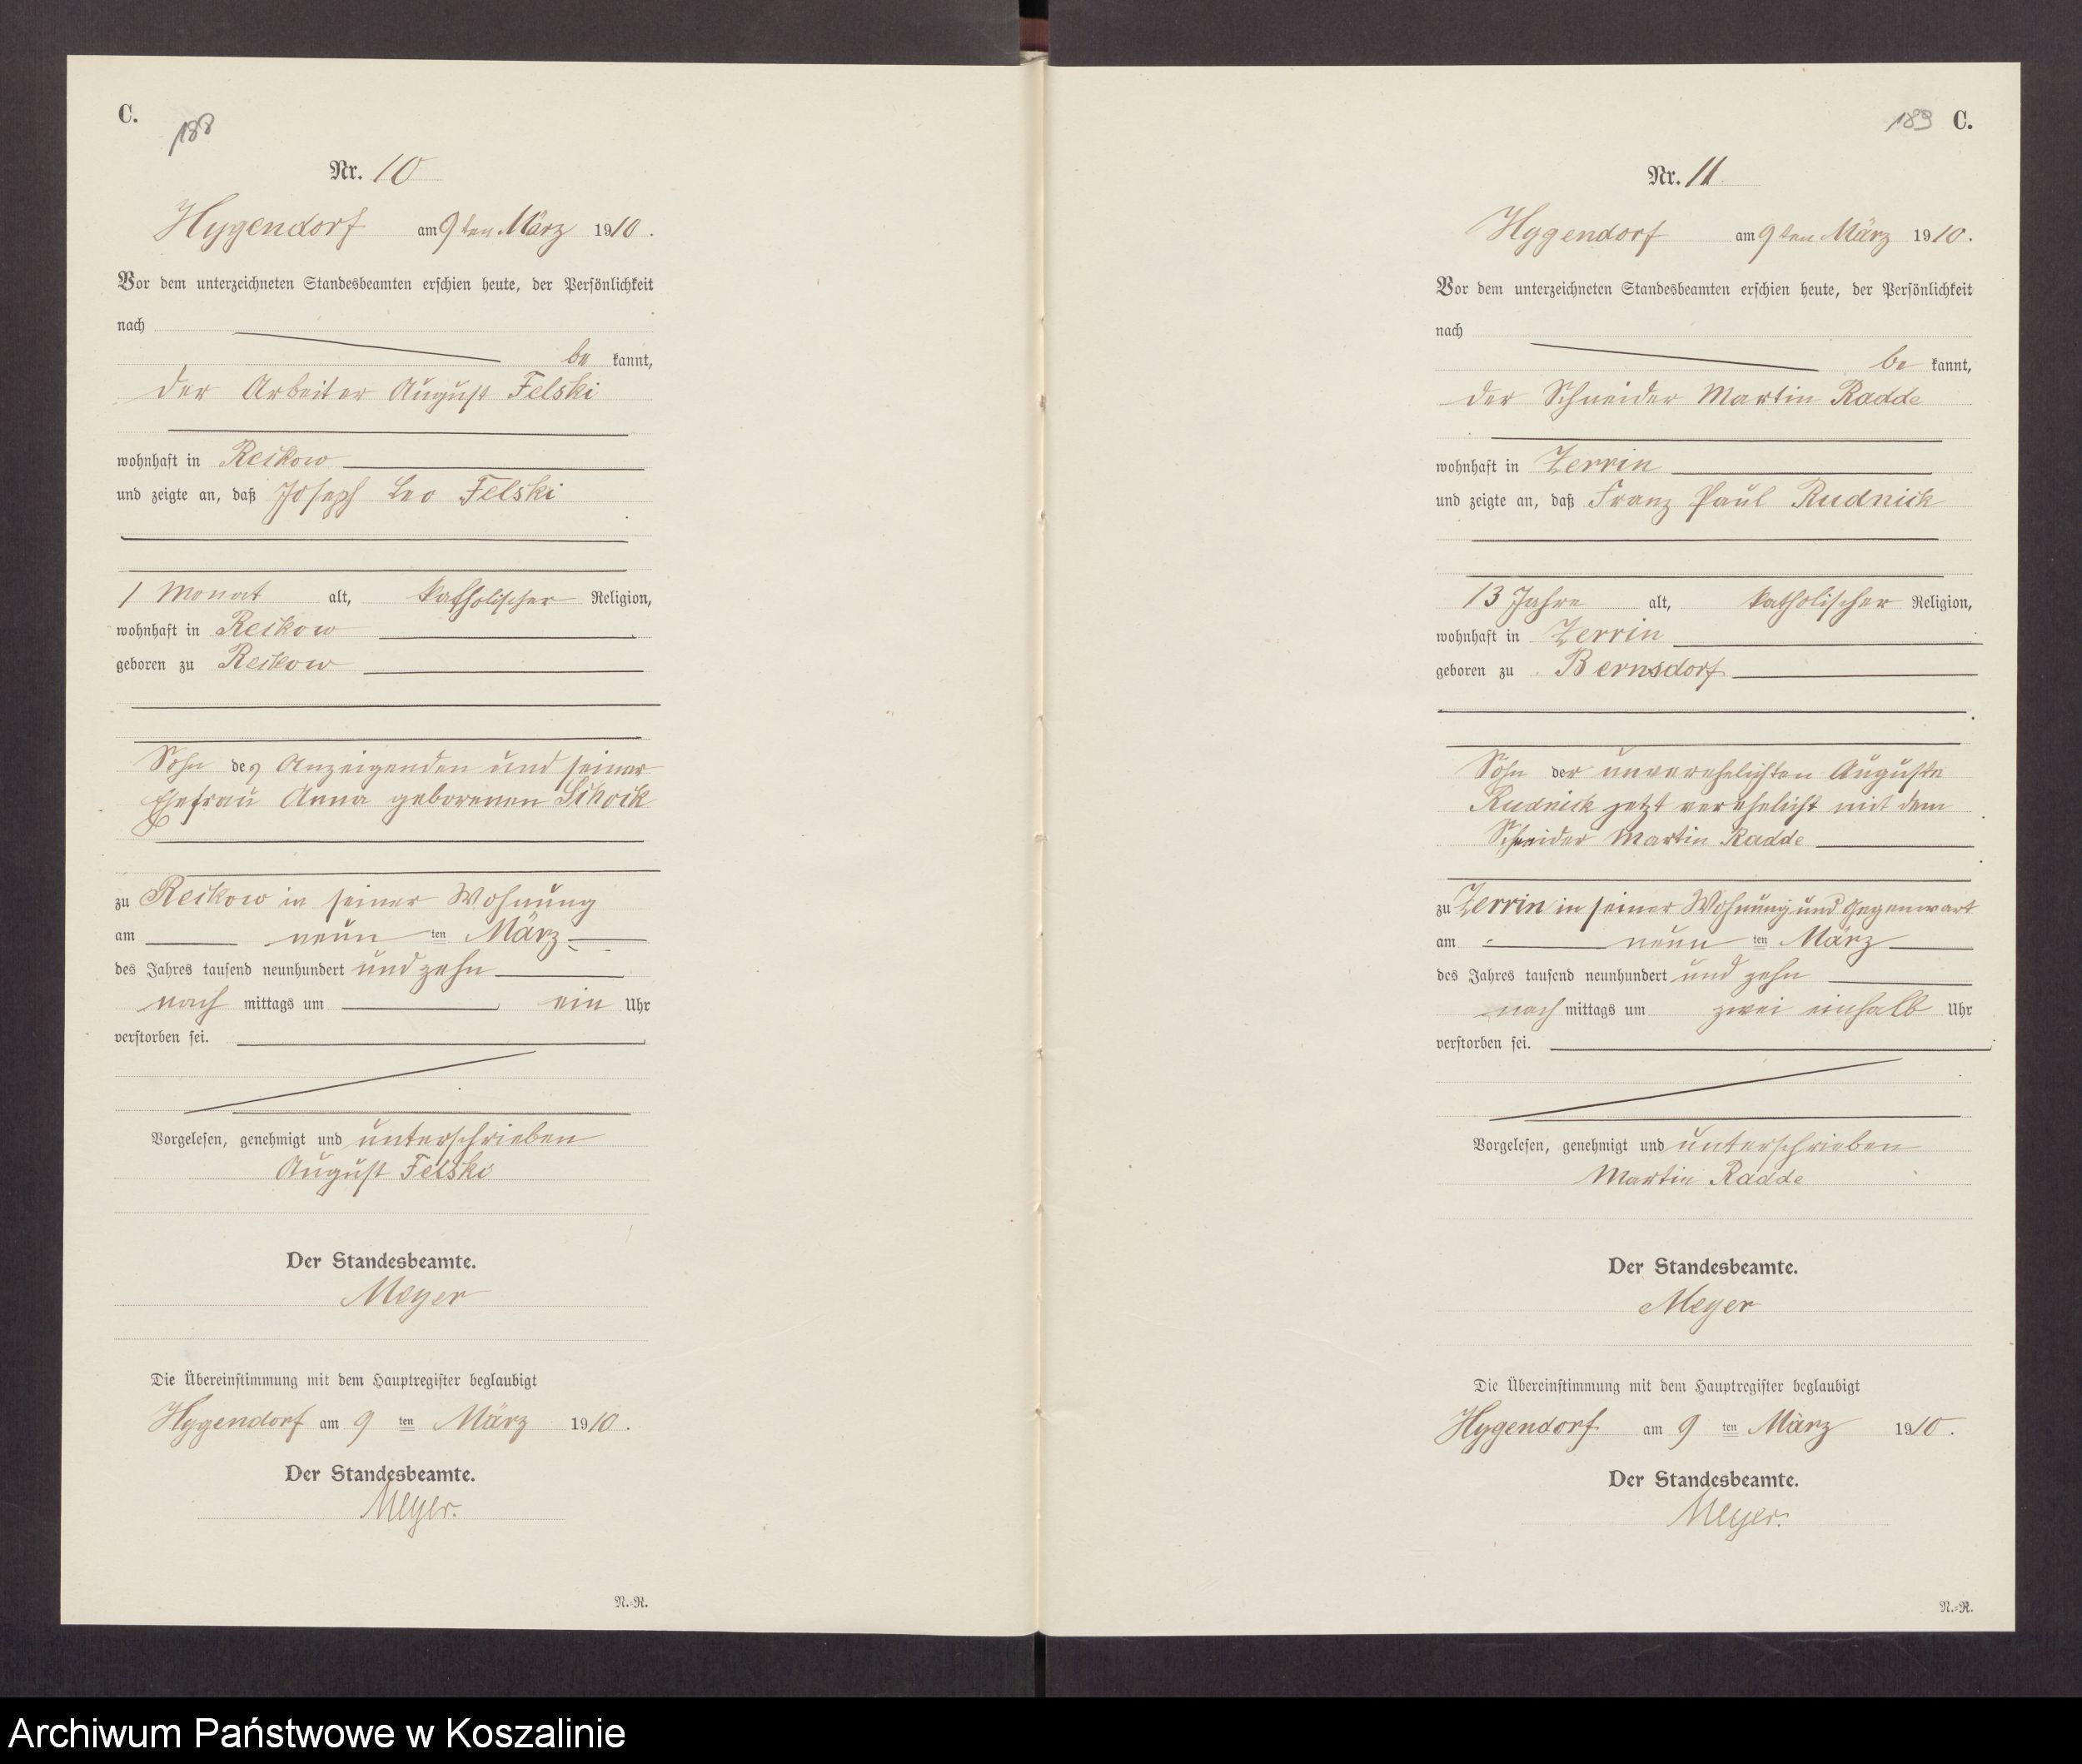 C.
188
Nr. 10
Hygendorf am 9ten März 1910.
Vor dem unterzeichneten Standesbeamten erschien heute, der Persönlichkeit
nach
be kannt,
der Arbeiter August Felski
wohnhaft in Reckow
und zeigte an, daß Joseph Leo Felski
1 Monat alt, katholischer Religion,
wohnhaft in Reckow
geboren zu Reckow
Sohn des Anzeigenden und seiner
Ehefrau Anna geborenen
zu Reckow in seiner Wohnung
am neun ten März
des Jahres tausend neunhundert und zehn
nach mittags um ein Uhr
verstorben sei.
Vorgelesen, genehmigt und unterschrieben
August Felski
Der Standesbeamte.
Meyer
Die Übereinstimmung mit dem Hauptregister beglaubigt
Hygendorf am 9 ten März 1910.
Der Standesbeamte.
Meyer.
N.-R.
189 C.
Nr. 11
Hygendorf am 9ten März 1910.
Vor dem unterzeichneten Standesbeamten erschien heute, der Persönlichkeit
nach
be kannt,
der Schneider Martin Radde
wohnhaft in Zerrin
und zeigte an, daß Franz Paul Rudnick
13 Jahre alt, katholischer Religion,
wohnhaft in Zerrin
geboren zu Bernsdorf
Sohn der unverehelichten Auguste
Rudnick jetzt verehelicht mit dem
Schneider Martin Radde
zu Zerrin in seiner Wohnung und Gegenwart
am neun ten März
des Jahres tausend neunhundert und zehn
nach mittags um zwei einhalb Uhr
verstorben sei.
Vorgelesen, genehmigt und unterschrieben
Martin Radde
Der Standesbeamte.
Meyer
Die Übereinstimmung mit dem Hauptregister beglaubigt
Hygendorf am 9 ten März 1910.
Der Standesbeamte.
Meyer.
N.-R.
Archiwum Państwowe w Koszalinie